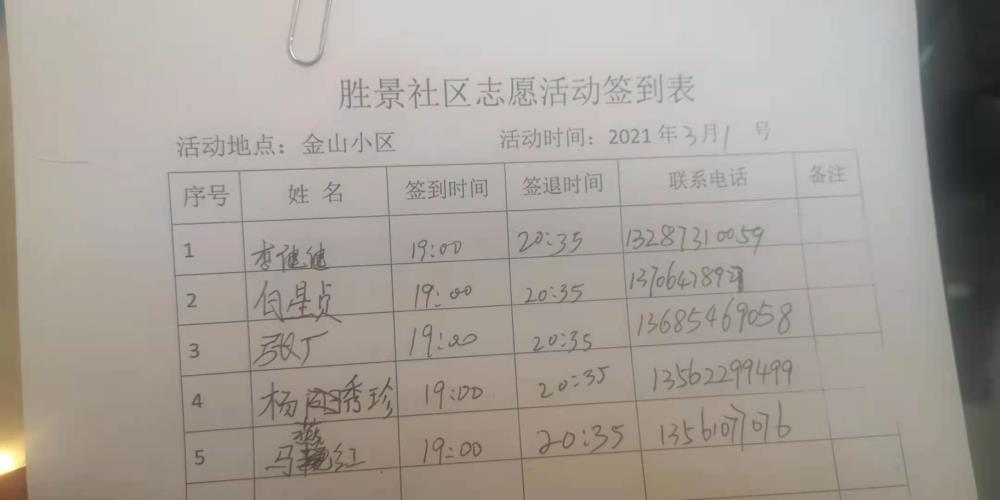 胜景社区志愿活动签到表
活动地点：金山小区 活动时间：2021年3月1号
序号 姓名 签到时间 签退时间 联系电话 备注
1 李健健 19:00 20:35 13287310059
2 19:00 20:35
3 张广 19:00 20:35 13685469058
4 杨秀珍 19:00 20:35 13562299499
5 马燕红 19:00 20:35 13561077076